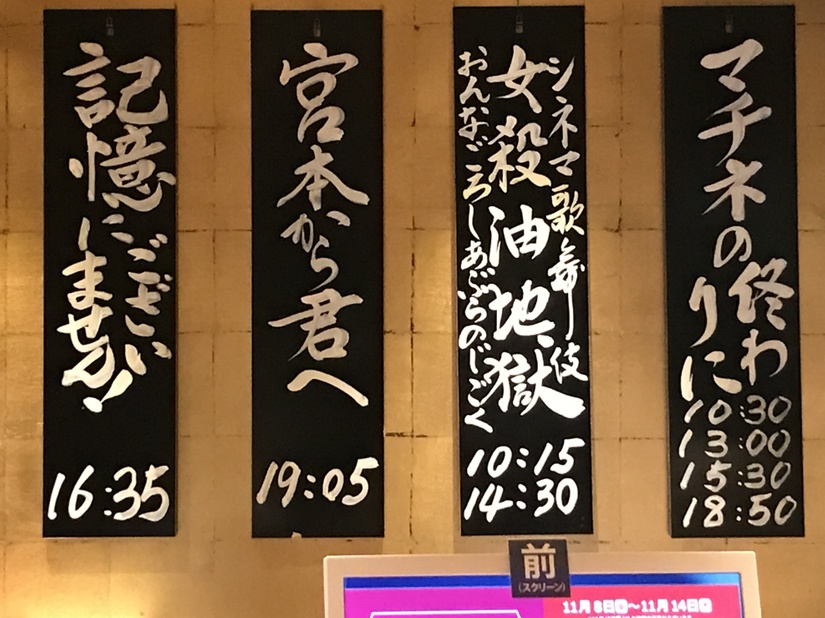 マチネの
終わ
りに
10:30
13:00
15:30
18:50
シネマ歌舞伎
女殺油地獄
おんなごろしあぶらのじごく
10:15
14:30
宮本から君へ
19:05
記憶に
ございません!
16:35
前
(スクリーン)
11月8日～11月14日